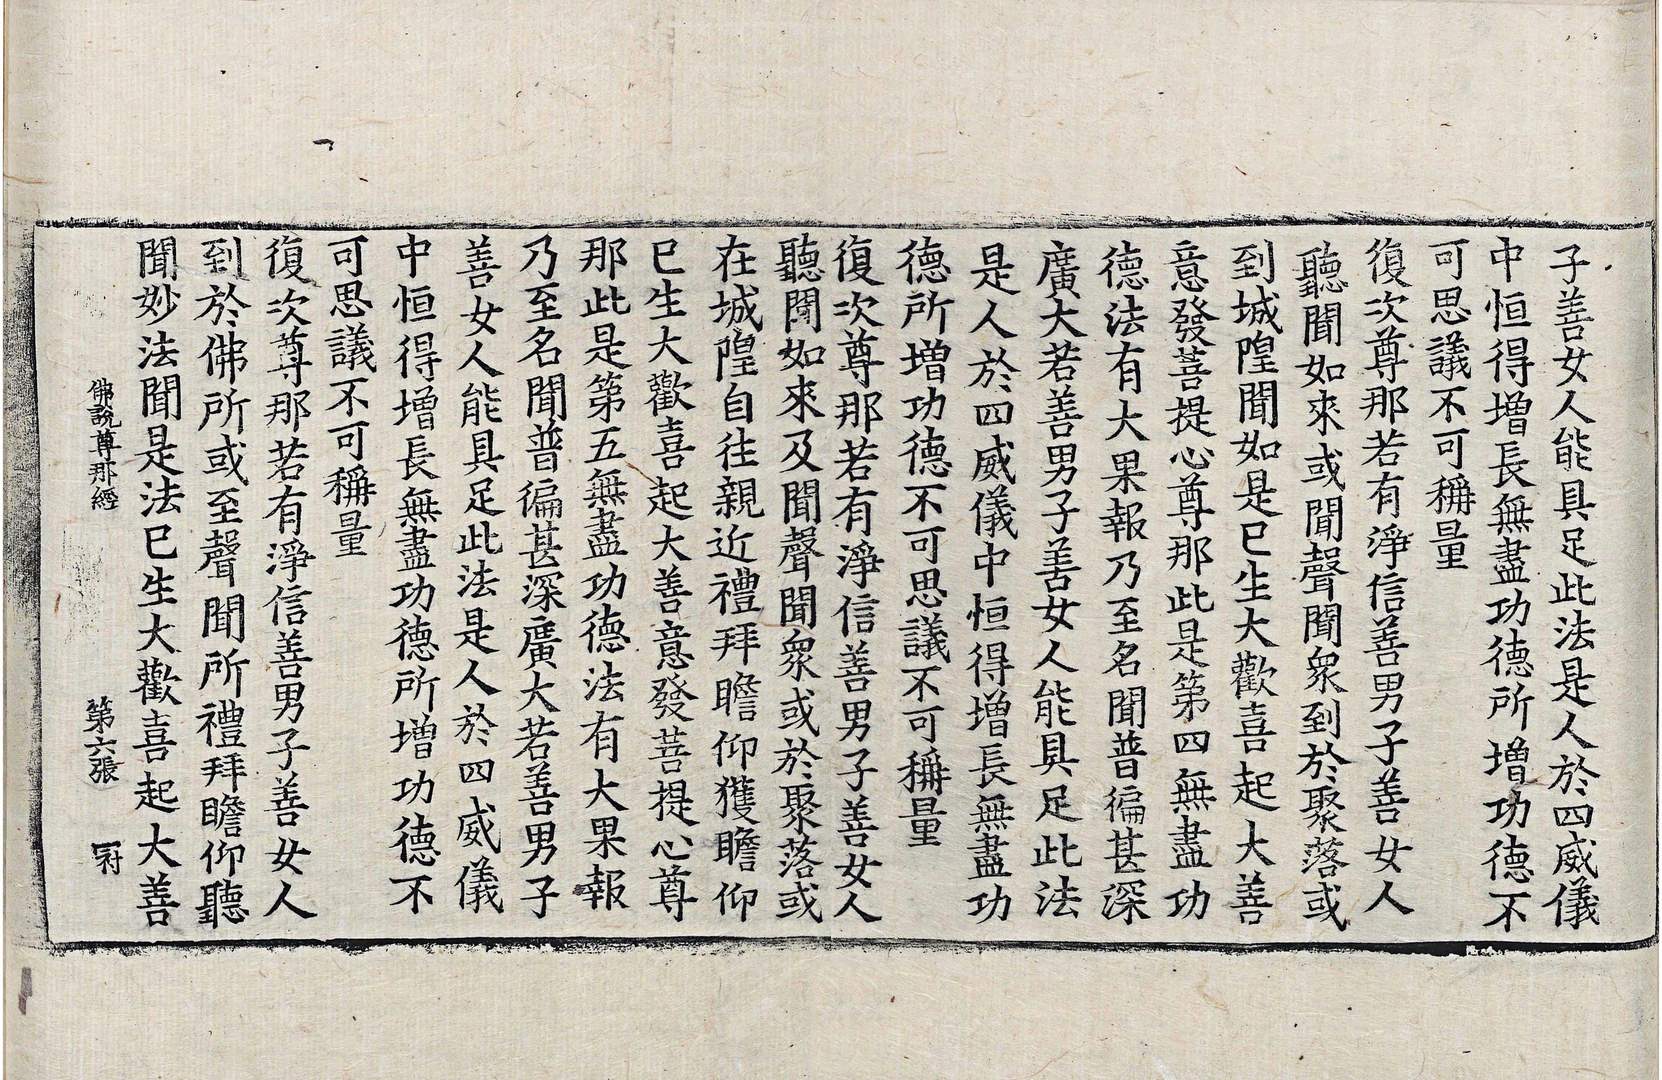 子善女人能具足此法是人於四威儀
中恒得增長無盡功德所增功德不
可思議不可稱量
復次尊那若有淨信善男子善女人
聽聞如來或聞聲聞衆到於聚落或
到城隍聞如是已生大歡喜起大善
意發菩提心尊那此是第四無盡功
德法有大果報乃至名聞普徧甚深
廣大若善男子善女人能具足此法
是人於四威儀中恒得增長無盡功
德所增功德不可思議不可稱量
復次尊那若有淨信善男子善女人
聽聞如來及聞聲聞衆或於聚落或
在城隍自往親近禮拜瞻仰獲瞻仰
已生大歡喜起大善意發菩提心尊
那此是第五無盡功德法有大果報
乃至名聞普徧甚深廣大若善男子
善女人能具足此法是人於四威儀
中恒得增長無盡功德所增功德不
可思議不可稱量
復次尊那若有淨信善男子善女人
到於佛所或至聲聞所禮拜瞻仰聽
聞妙法聞是法已生大歡喜起大善
佛說尊那經 第六張 冠